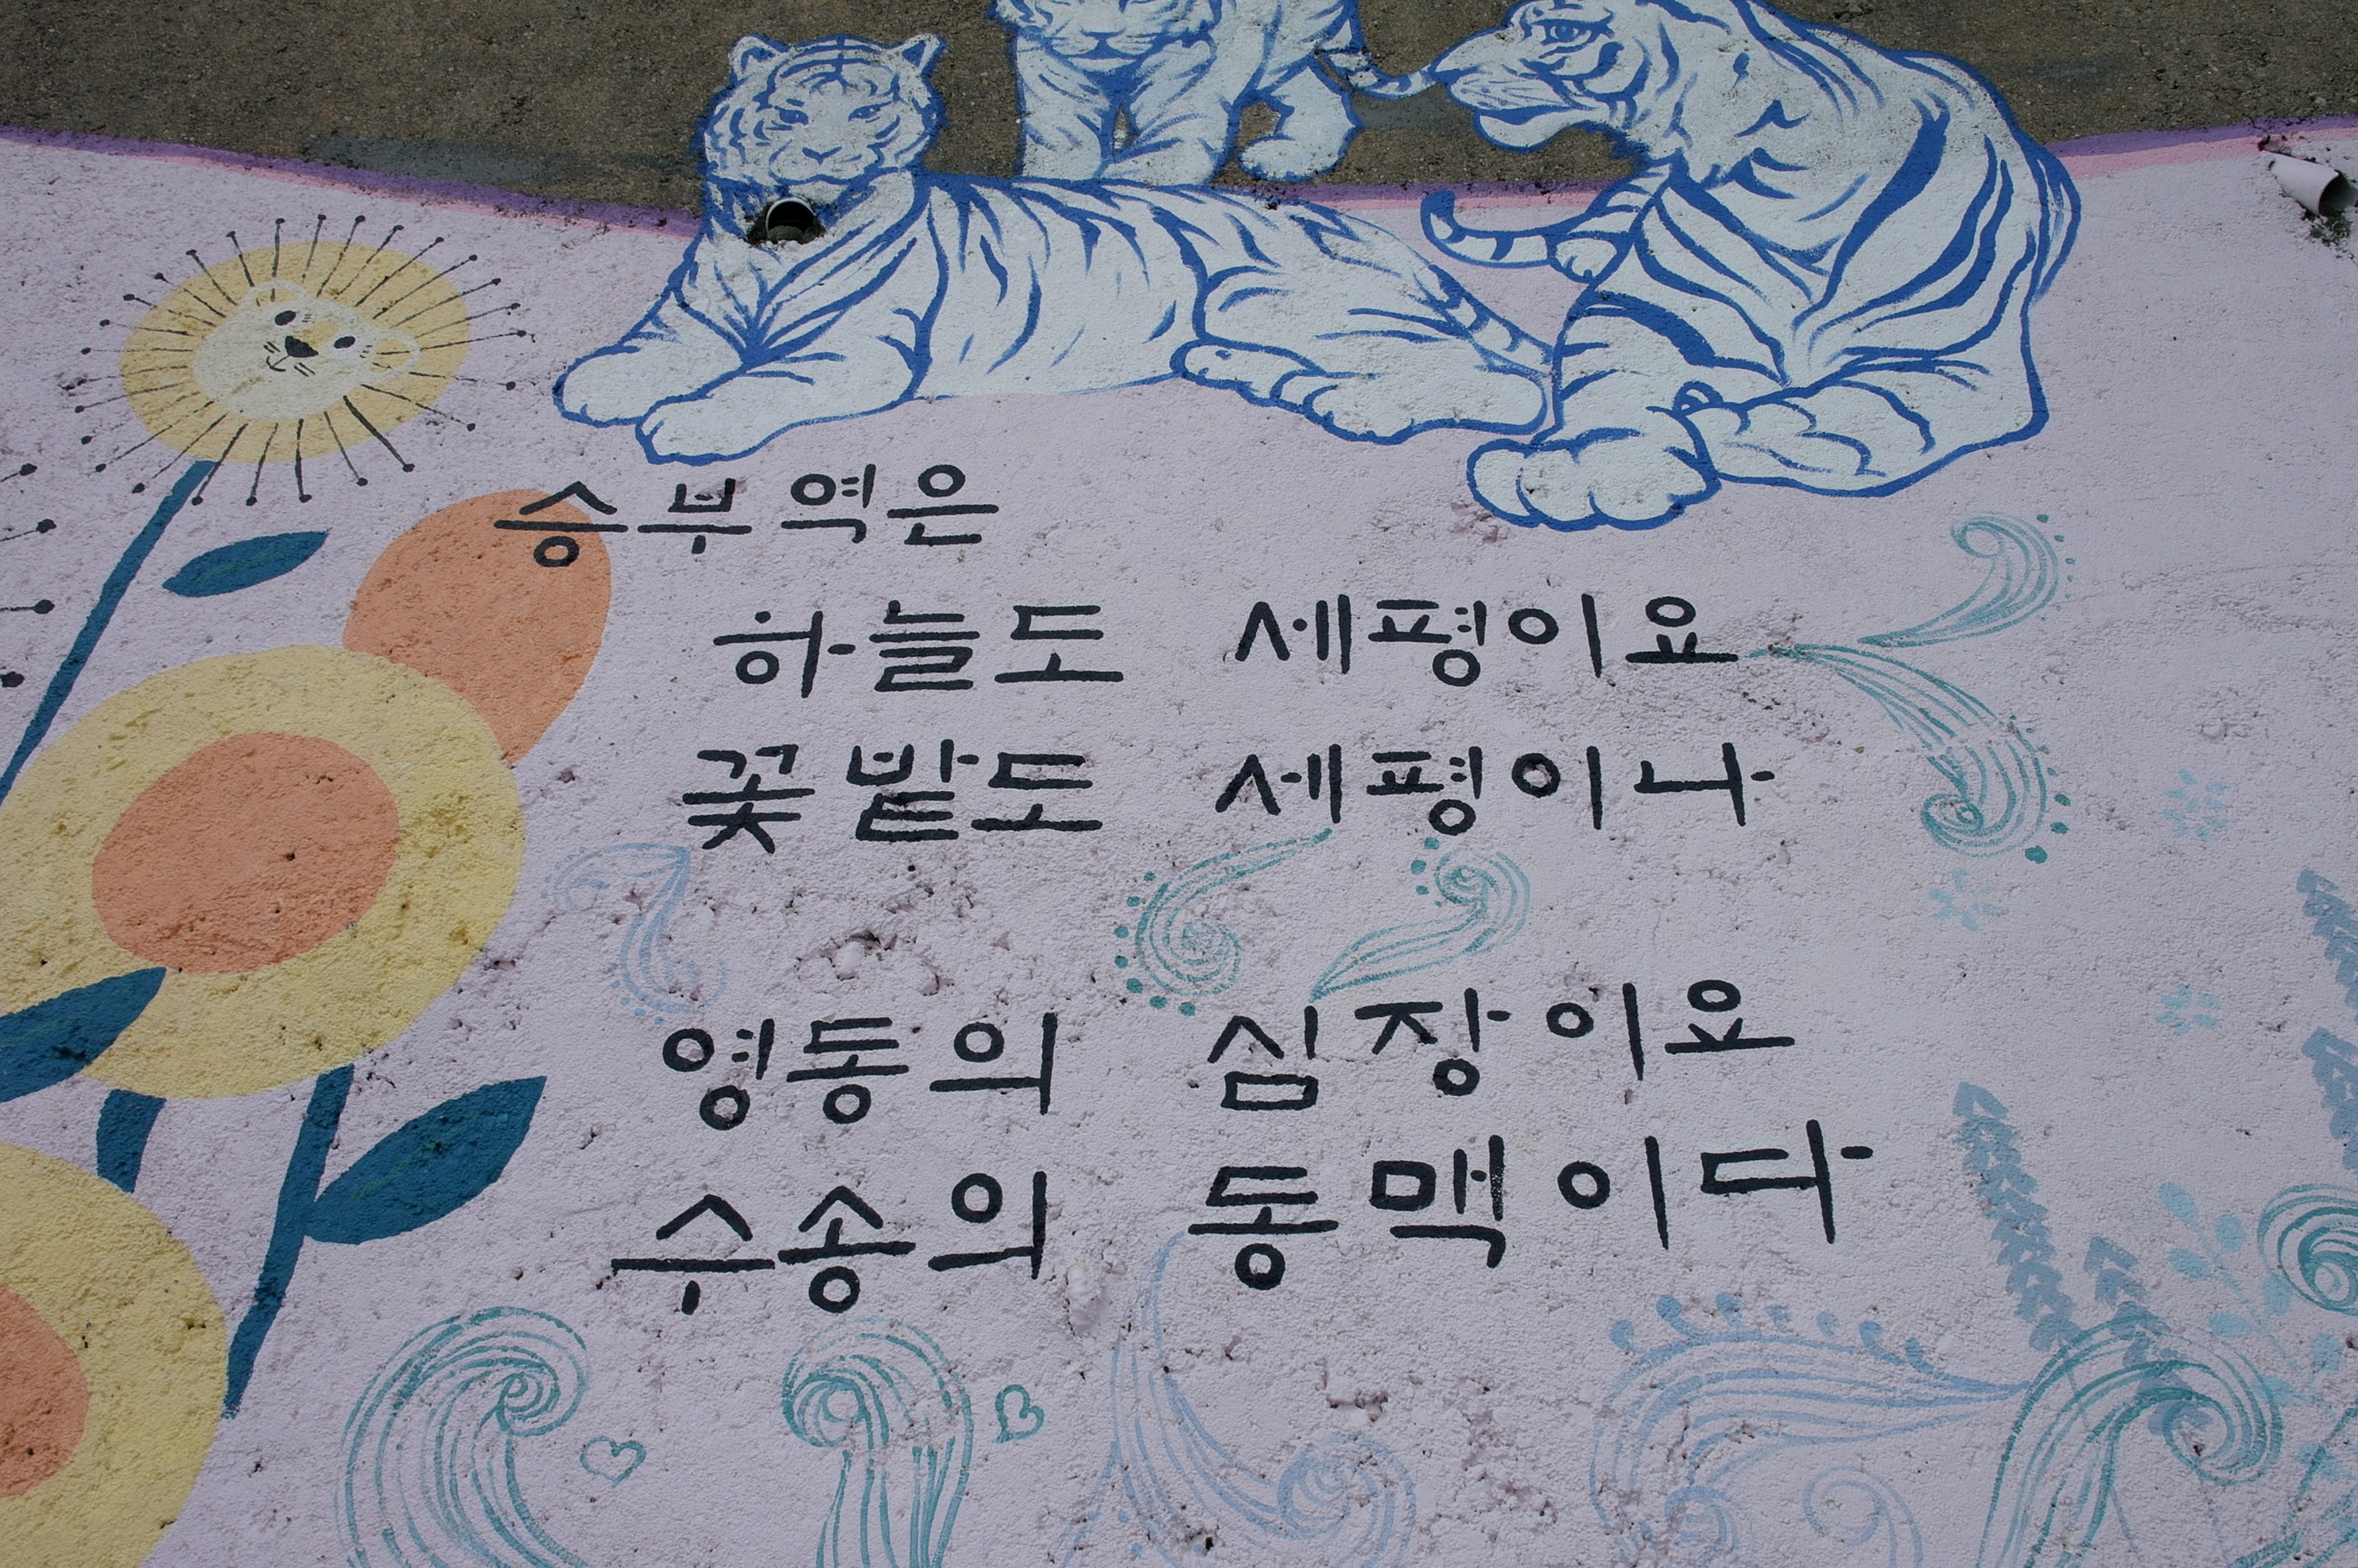 승부역은
하늘도 세평이요
꽃밭도 세평이나
영동의 심장이요
수송의 동맥이다